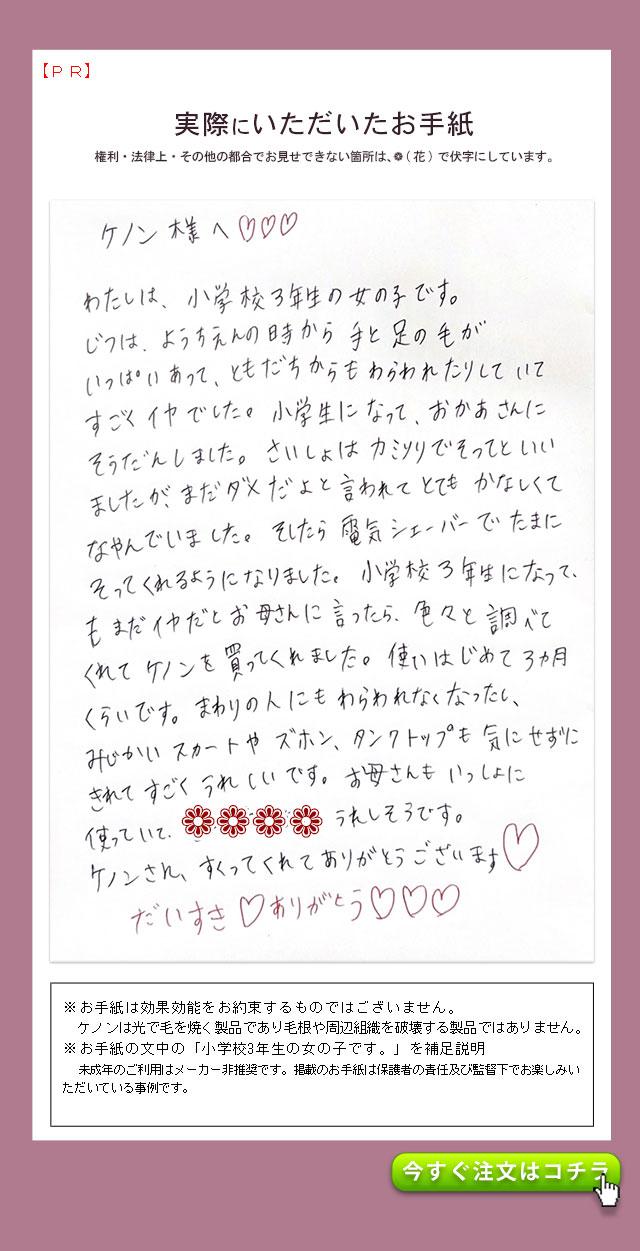 【ＰＲ】
実際にいただいたお手紙
権利・法律上・その他の都合でお見せできない箇所は、❁(花)で伏字にしています。
ケノン様へ♡♡♡
わたしは、小学校3年生の女の子です。
じつは、ようちえんの時から手と足の毛が
いっぱいあって、ともだちからもわらわれたりしていて
すごくイヤでした。小学生になって、おかあさんに
そうだんしました。さいしょはカミソリでそってといい
ましたが、まだダメだよと言われてとてもかなしくて
なやんでいました。そしたら電気シェーバーでたまに
そってくれるようになりました。小学校3年生になって、
もまだイヤだとお母さんに言ったら、色々と調べて
くれてケノンを買ってくれました。使いはじめて3カ月
くらいです。まわりの人にもわらわれなくなったし、
みじかいスカートやズボン、タンクトップも気にせずに
きれてすごくうれしいです。お母さんもいっしょに
使っていて、❁❁❁❁うれしそうです。
ケノンさん、すくってくれてありがとうございます♡
だいすき♡ありがとう♡♡♡
※お手紙は効果効能をお約束するものではございません。
ケノンは光で毛を焼く製品であり毛根や周辺組織を破壊する製品ではありません。
※お手紙の文中の「小学校3年生の女の子です。」を補足説明
未成年のご利用はメーカー非推奨です。掲載のお手紙は保護者の責任及び監督下でお楽しみい
ただいている事例です。
今すぐ注文はコチラ